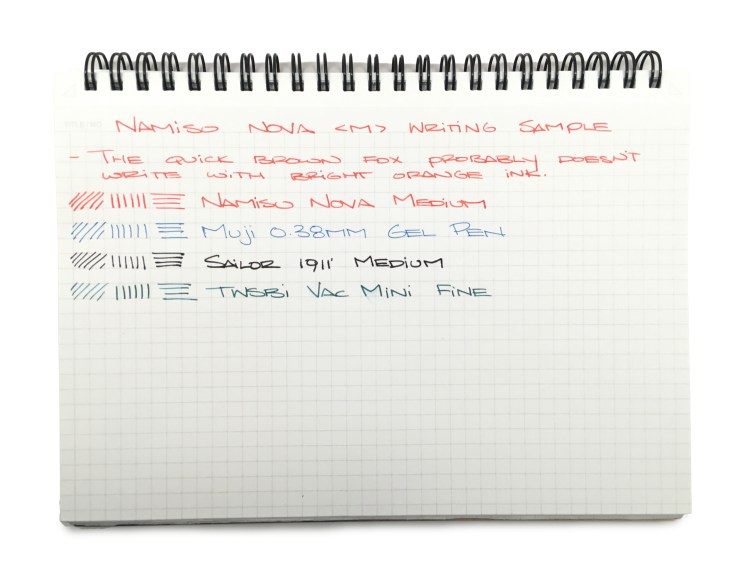 NAMISU NOVA <M> WRITING SAMPLE
- THE QUICK BROWN FOX PROBABLY DOESN'T
WRITE WITH BRIGHT ORANGE INK.
NAMISU NOVA MEDIUM
MUJI 0.38MM GEL PEN
SAILOR 1911 MEDIUM
TWSBI VAC MINI FINE